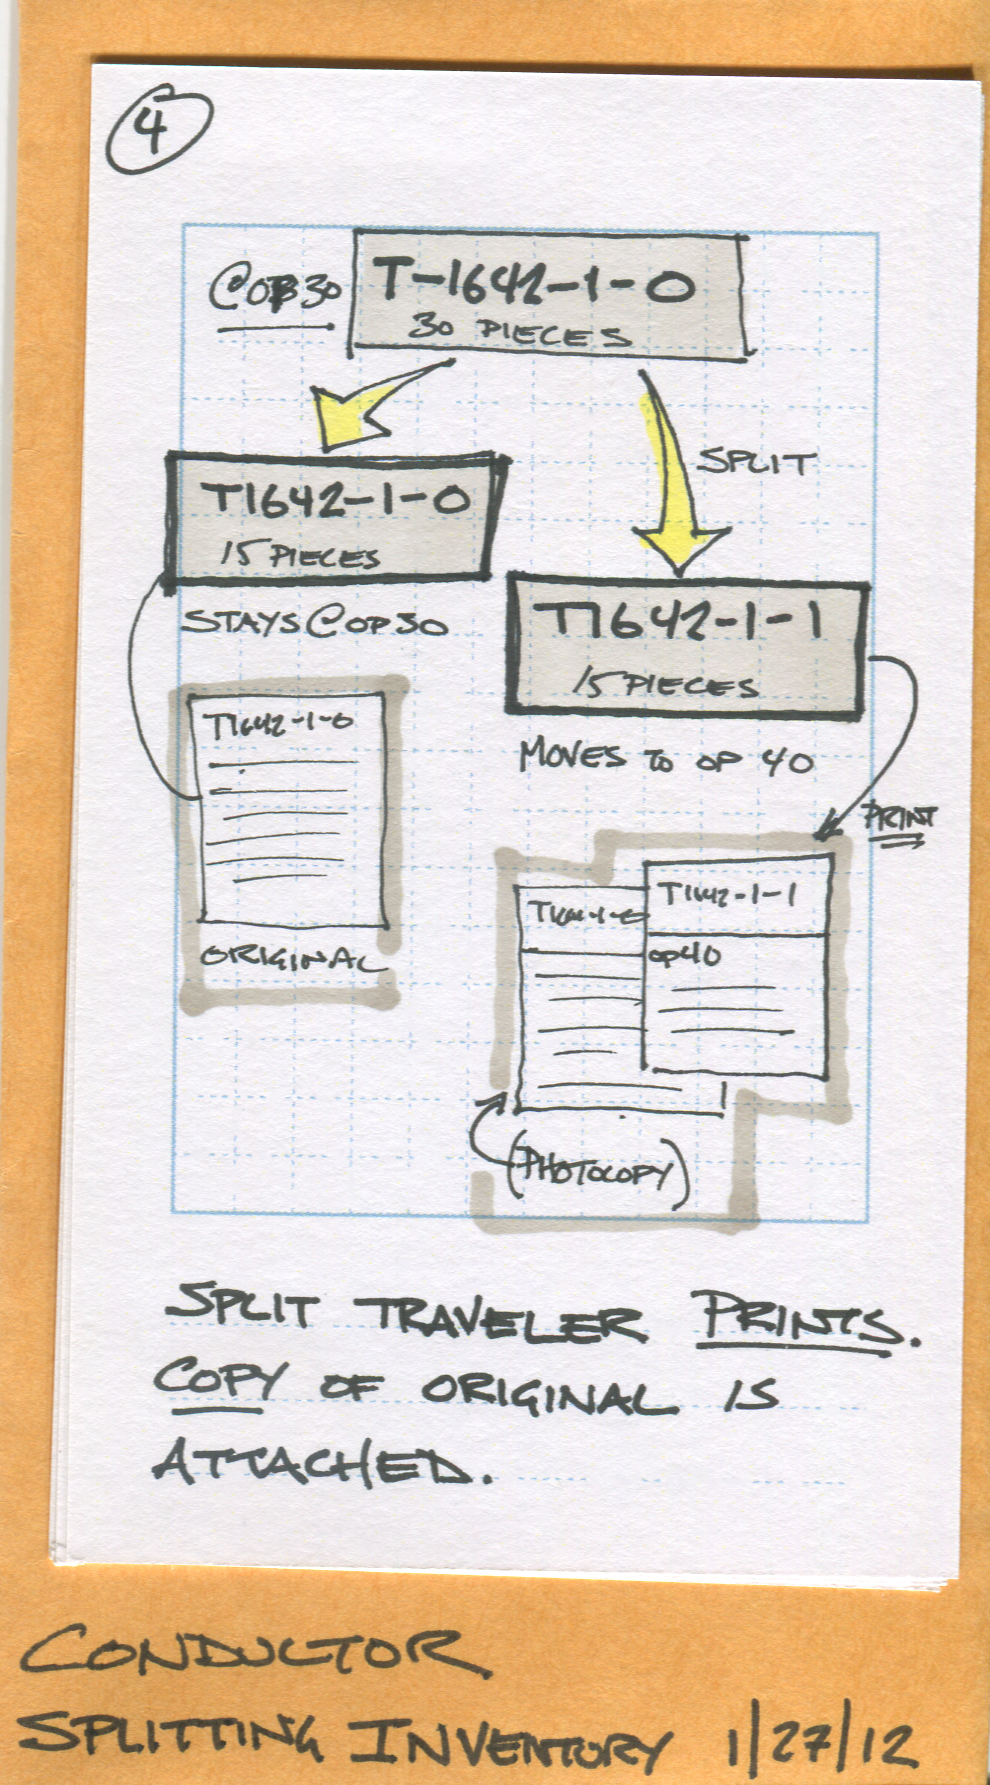 4
@OP30
T-1642-1-0
30 PIECES
SPLIT
T1642-1-0
15 PIECES
STAYS @ OP 30
T1642-1-1
15 PIECES
MOVES TO OP 40
T1642-1-0
ORIGINAL
PRINT
T1642-1-1
OP40
(PHOTOCOPY)
SPLIT TRAVELER PRINTS.
COPY OF ORIGINAL IS
ATTACHED.
CONDUCTOR
SPLITTING INVENTORY 1/27/12